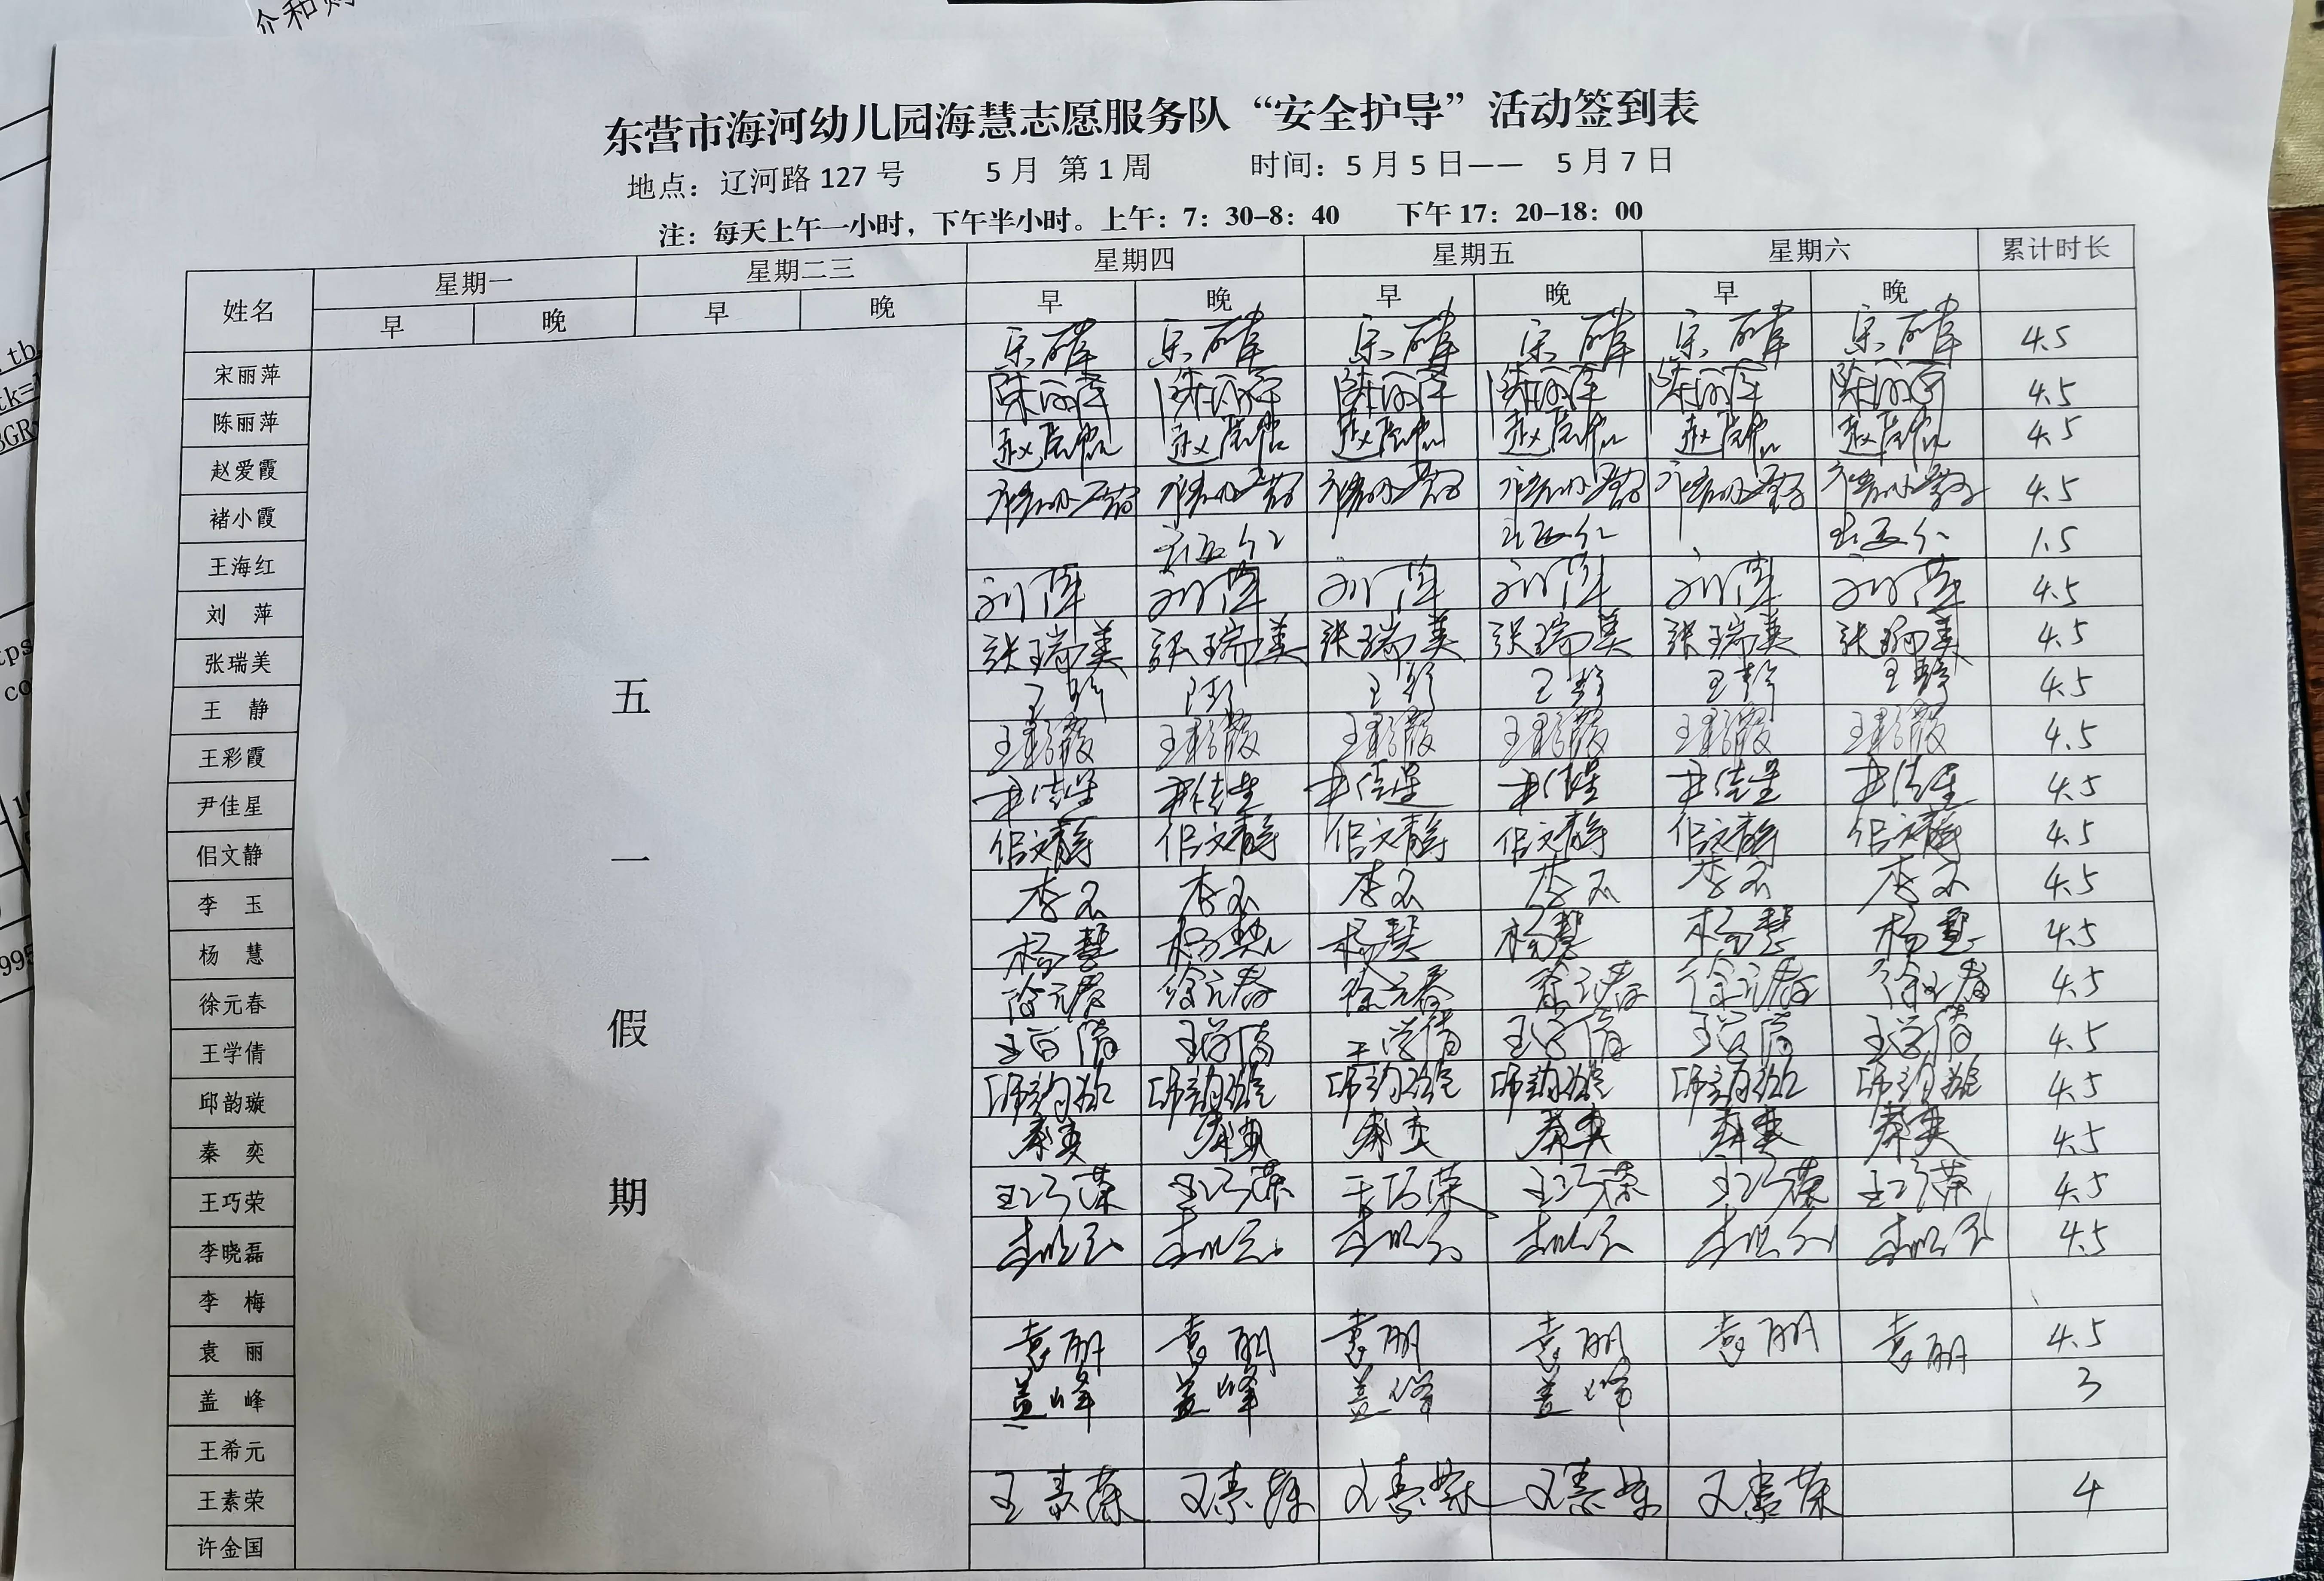 介和
东营市海河幼儿园海慧志愿服务队“安全护导”活动签到表
地点：辽河路 127 号 5 月 第 1 周 时间：5 月 5 日—— 5 月 7 日
注：每天上午一小时，下午半小时。上午：7：30-8：40 下午 17：20-18：00
姓名 星期一 星期二三 星期四 星期五 星期六 累计时长
早 晚 早 晚 早 晚 早 晚 早 晚
宋丽萍 4.5
陈丽萍 陈丽萍 陈丽萍 陈丽萍 陈丽萍 陈丽萍 陈丽萍 4.5
赵爱霞 4.5
褚小霞 4.5
王海红 1.5
刘 萍 刘萍 刘萍 刘萍 刘萍 刘萍 刘萍 4.5
张瑞美 张瑞美 张瑞美 张瑞美 张瑞美 张瑞美 张瑞美 4.5
王 静 王静 王静 王静 王静 王静 王静 4.5
王彩霞 王彩霞 王彩霞 王彩霞 王彩霞 王彩霞 王彩霞 4.5
尹佳星 尹佳星 尹佳星 尹佳星 尹佳星 尹佳星 尹佳星 4.5
佀文静 佀文静 佀文静 佀文静 佀文静 佀文静 佀文静 4.5
李 玉 李玉 李玉 李玉 李玉 李玉 李玉 4.5
杨 慧 杨慧 杨慧 杨慧 杨慧 杨慧 杨慧 4.5
徐元春 徐元春 徐元春 徐元春 徐元春 徐元春 徐元春 4.5
王学倩 王学倩 王学倩 王学倩 王学倩 王学倩 王学倩 4.5
邱韵璇 邱韵璇 邱韵璇 邱韵璇 邱韵璇 邱韵璇 邱韵璇 4.5
秦 奕 秦奕 秦奕 秦奕 秦奕 秦奕 秦奕 4.5
王巧荣 王巧荣 王巧荣 王巧荣 王巧荣 王巧荣 王巧荣 4.5
李晓磊 李晓磊 李晓磊 李晓磊 李晓磊 李晓磊 李晓磊 4.5
李 梅
袁 丽 袁丽 袁丽 袁丽 袁丽 袁丽 袁丽 4.5
盖 峰 盖峰 盖峰 盖峰 盖峰 3
王希元
王素荣 王素荣 王素荣 王素荣 王素荣 王素荣 4
许金国
五
一
假
期